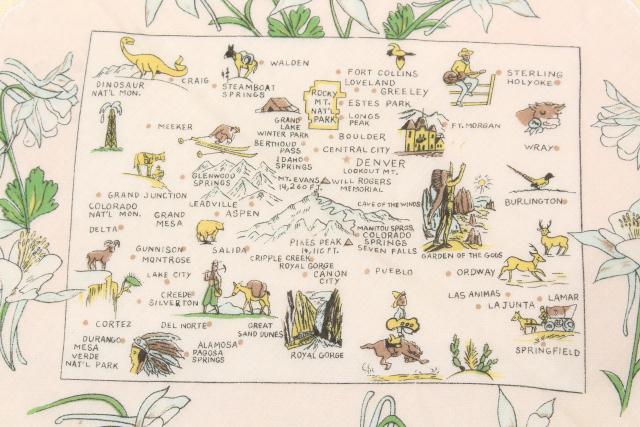 DINOSAUR
NAT'L MON.
CRAIG
STEAMBOAT
SPRINGS
WALDEN
FORT COLLINS
LOVELAND
GREELEY
ESTES PARK
STERLING
HOLYOKE
ROCKY
MT.
NAT'L
PARK
LONGS
PEAK
MEEKER
GRAND
LAKE
WINTER PARK
BERTHOUD
PASS
BOULDER
CENTRAL CITY
FT. MORGAN
WRAY
IDAHO
SPRINGS
DENVER
LOOKOUT MT.
GLENWOOD
SPRINGS
MT. EVANS
14,260 FT.
WILL ROGERS
MEMORIAL
GRAND JUNCTION
COLORADO
NAT'L MON.
GRAND
MESA
LEADVILLE
ASPEN
CAVE OF THE WINDS
BURLINGTON
DELTA
MANITOU SPRGS.
COLORADO
SPRINGS
SEVEN FALLS
PIKES PEAK
14,110 FT.
GARDEN OF THE GODS
GUNNISON
MONTROSE
SALIDA
CRIPPLE CREEK
ROYAL GORGE
CANON
CITY
PUEBLO
ORDWAY
LAKE CITY
CREEDE
SILVERTON
LAS ANIMAS
LA JUNTA
LAMAR
CORTEZ
DEL NORTE
GREAT
SAND DUNES
DURANGO
MESA
VERDE
NAT'L PARK
ALAMOSA
PAGOSA
SPRINGS
ROYAL GORGE
SPRINGFIELD